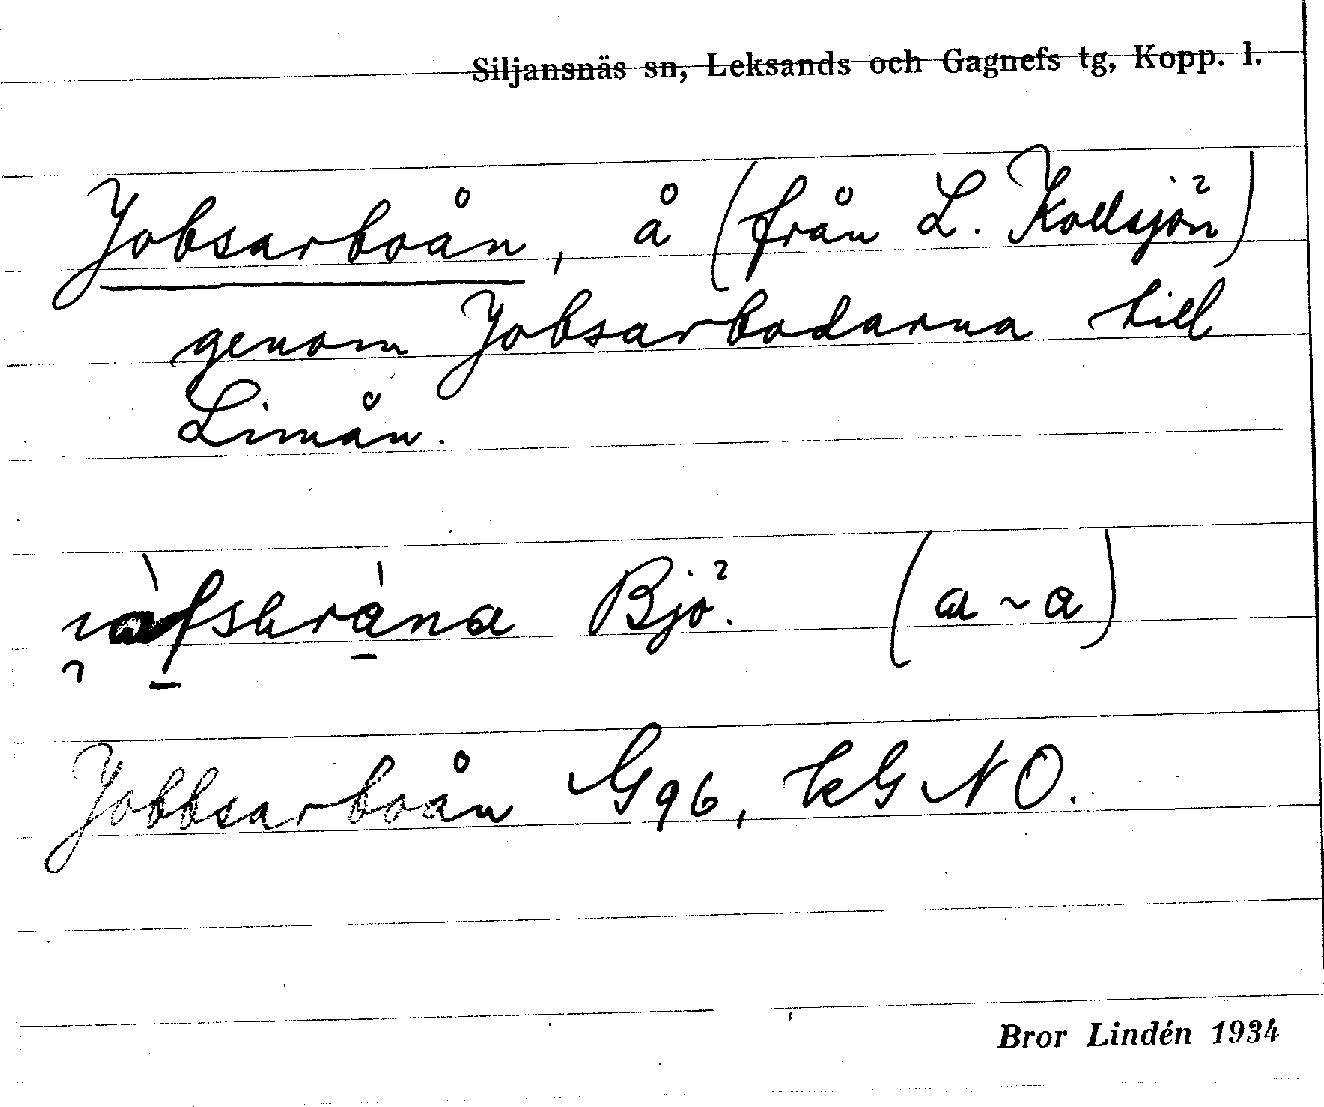 Siljansnäs sn, Leksands och Gagnefs tg, Kopp. l.
Jobsarboån, å (från L. Kollsjön)
genom Jobsarbodarna till
Limån.
Bjö. (a ~ a)
Jobbsarboån G96, kG NO.
Bror Lindén 1934